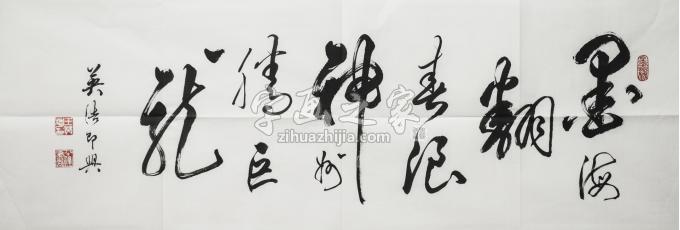 墨海
翻
春浪
神州
腾巨
龙
英浩即興
字画之家
zihuazhijia.com